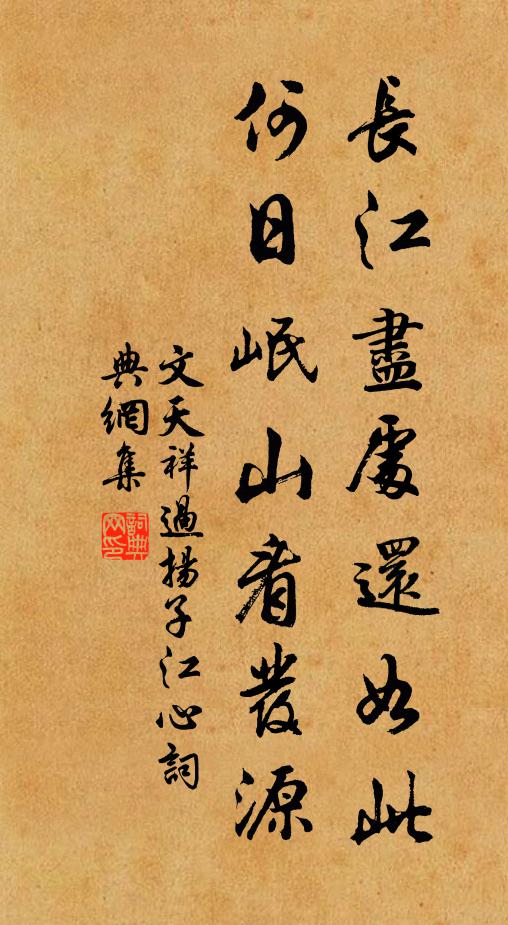 長江盡處還如此
何日岷山看發源
文天祥過揚子江心詞
典網集
詞典
网印